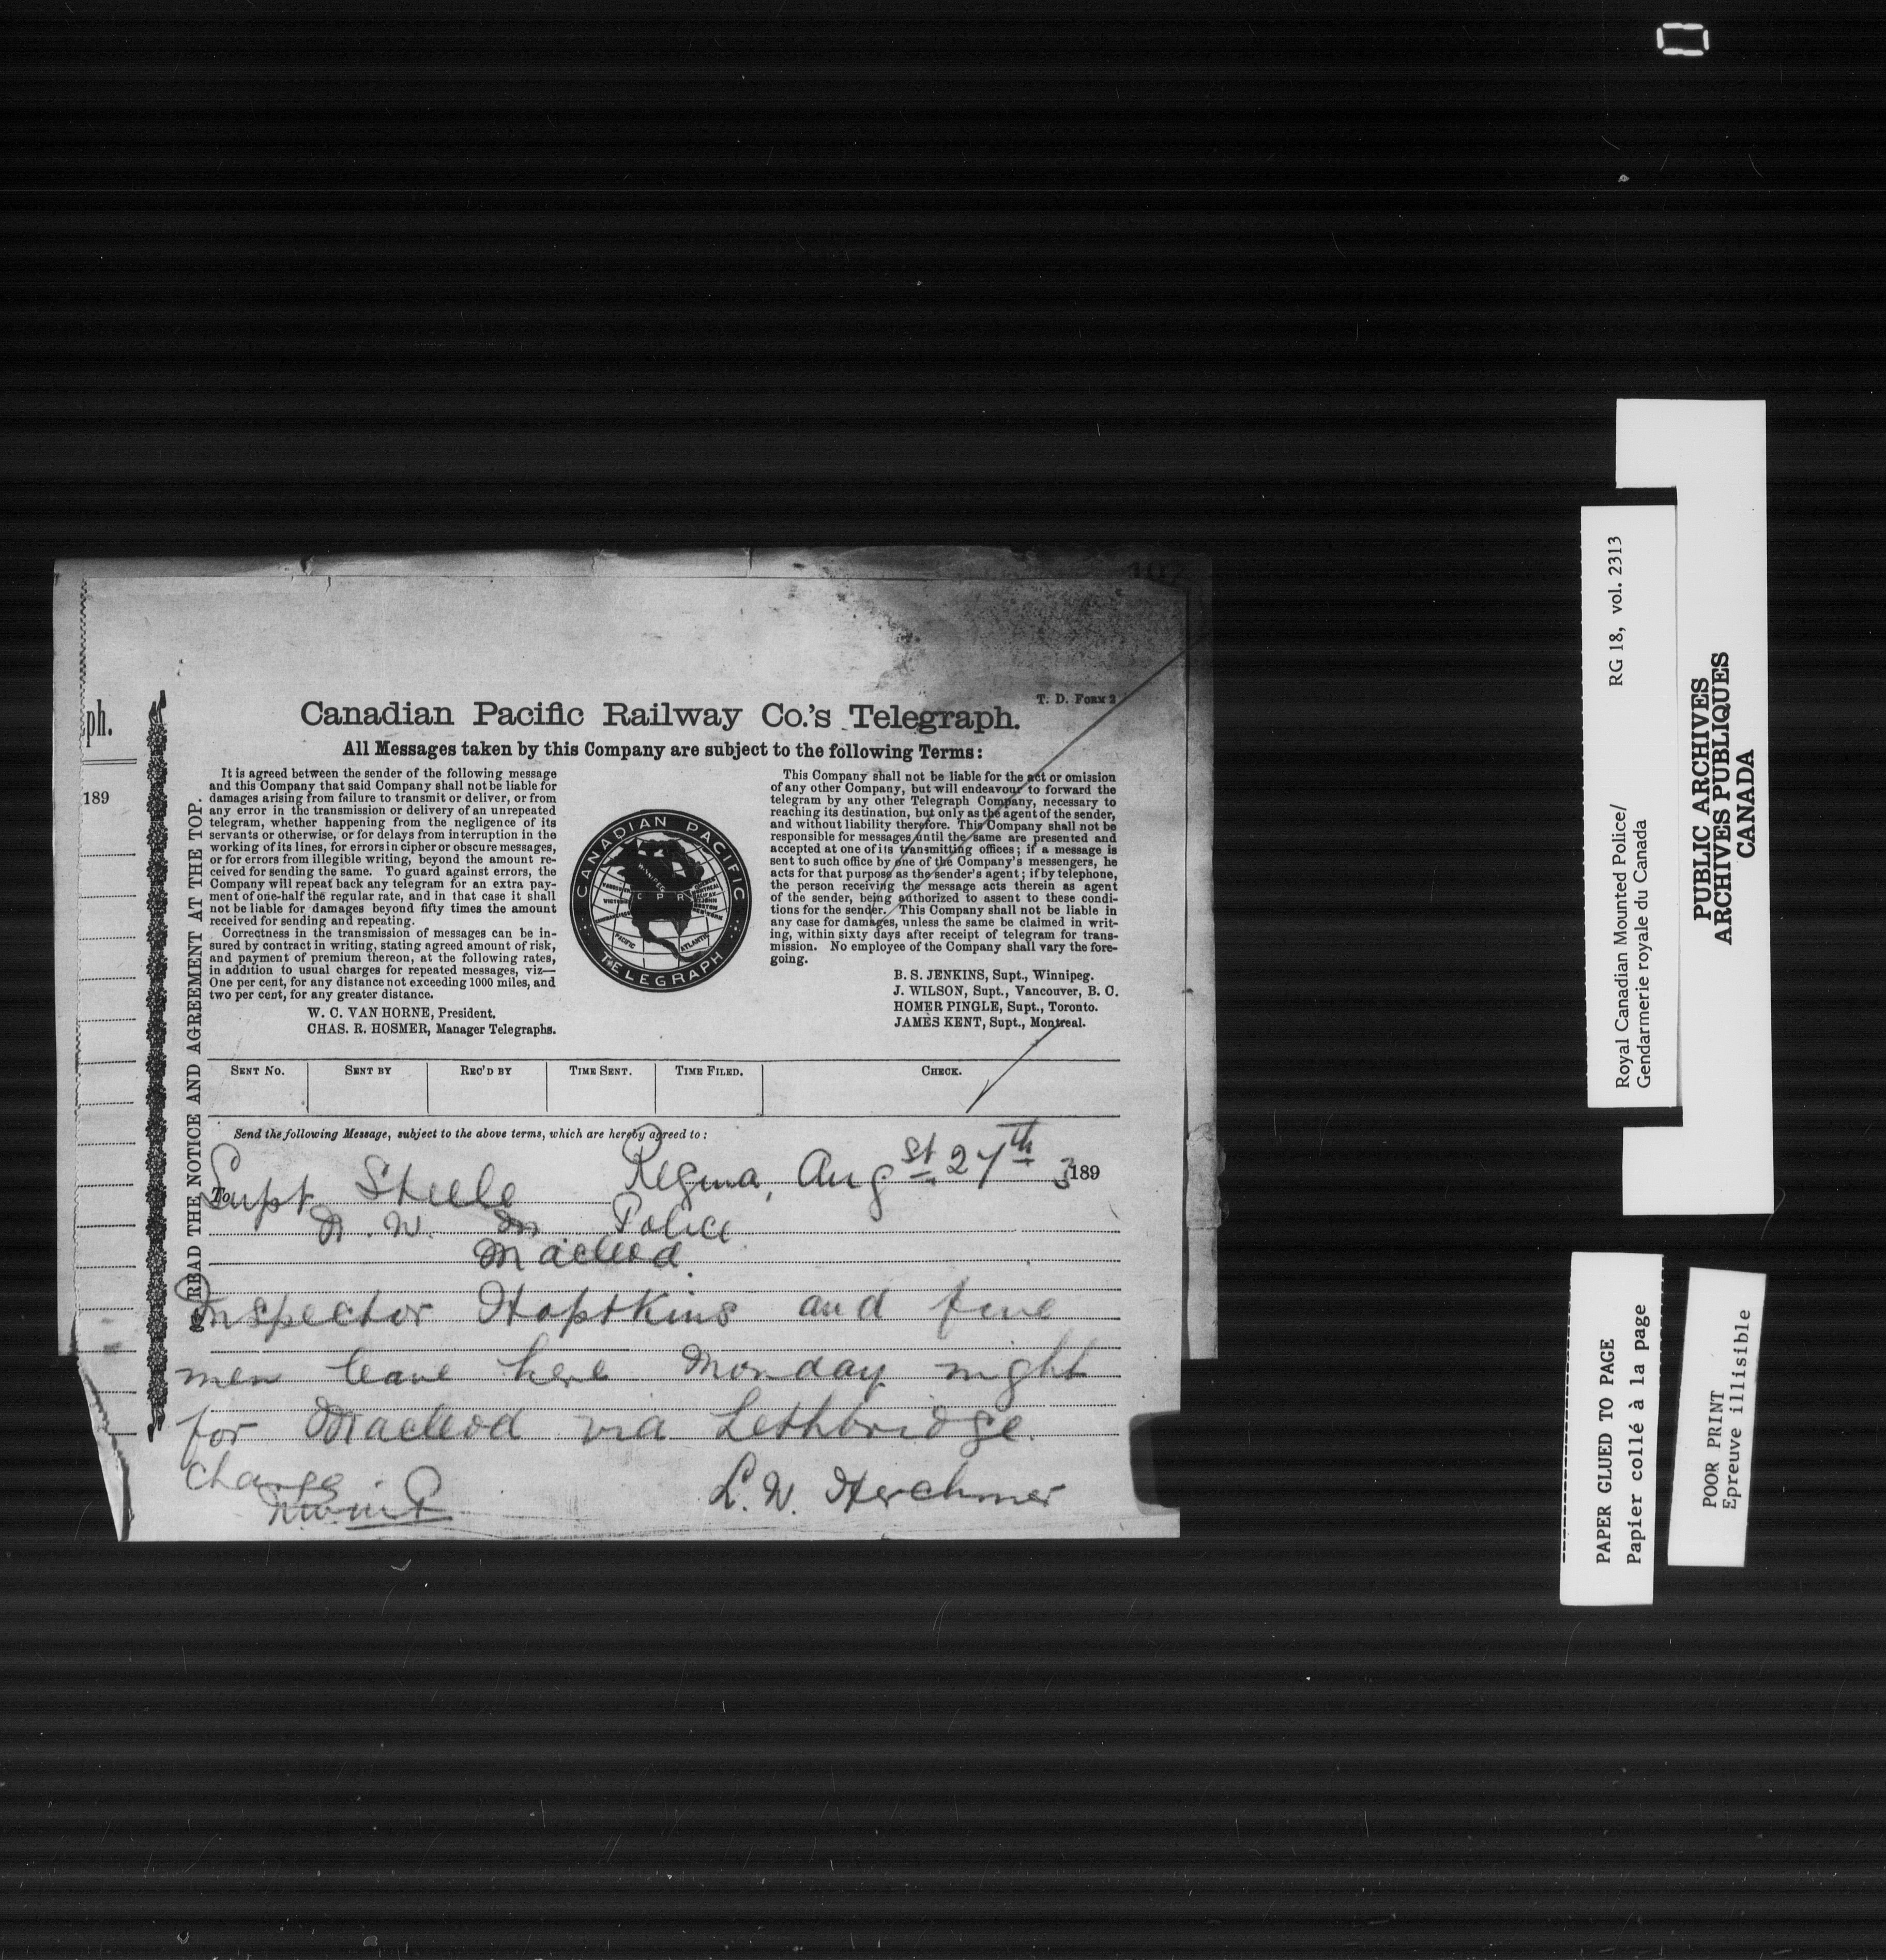 107
T. D. Form 2
Canadian Pacific Railway Co.'s Telegraph.
All Messages taken by this Company are subject to the following Terms:
It is agreed between the sender of the following message
and this Company that said Company shall not be liable for
damages arising from failure to transmit or deliver, or from
any error in the transmission or delivery of an unrepeated
telegram, whether happening from the negligence of its
servants or otherwise, or for delays from interruption in the
working of its lines, for errors in cipher or obscure messages,
or for errors from illegible writing, beyond the amount re-
ceived for sending the same. To guard against errors, the
Company will repeat back any telegram for an extra pay-
ment of one-half the regular rate, and in that case it shall
not be liable for damages beyond fifty times the amount
received for sending and repeating.
Correctness in the transmission of messages can be in-
sured by contract in writing, stating agreed amount of risk,
and payment of premium thereon, at the following rates,
in addition to usual charges for repeated messages, viz—
One per cent, for any distance not exceeding 1000 miles, and
two per cent, for any greater distance.
W. C. VAN HORNE, President.
CHAS. R. HOSMER, Manager Telegraphs.
CANADIAN PACIFIC
WINNIPEG
C P R
PACIFIC
ATLANTIC
TELEGRAPH
This Company shall not be liable for the act or omission
of any other Company, but will endeavour to forward the
telegram by any other Telegraph Company, necessary to
reaching its destination, but only as the agent of the sender,
and without liability therefore. This Company shall not be
responsible for messages until the same are presented and
accepted at one of its transmitting offices; if a message is
sent to such office by one of the Company's messengers, he
acts for that purpose as the sender's agent; if by telephone,
the person receiving the message acts therein as agent
of the sender, being authorized to assent to these condi-
tions for the sender. This Company shall not be liable in
any case for damages, unless the same be claimed in writ-
ing, within sixty days after receipt of telegram for trans-
mission. No employee of the Company shall vary the fore-
going.
B. S. JENKINS, Supt., Winnipeg.
J. WILSON, Supt., Vancouver, B. C.
HOMER PINGLE, Supt., Toronto.
JAMES KENT, Supt., Montreal.
Sent No. Sent by Rec'd by Time Sent. Time Filed. Check.
Send the following Message, subject to the above terms, which are hereby agreed to:
Regina, Augst 27th 3 189
To Supt Steele
N. W. M Police
Macleod.
Inspector Hoptkins and five
men leave here Monday night
for Macleod via Lethbridge.
Charge
L. W. Herchmer
READ THE NOTICE AND AGREEMENT AT THE TOP.
ph.
189
RG 18, vol. 2313
Royal Canadian Mounted Police/
Gendarmerie royale du Canada
PUBLIC ARCHIVES
ARCHIVES PUBLIQUES
CANADA
PAPER GLUED TO PAGE
Papier collé à la page
POOR PRINT
Epreuve illisible